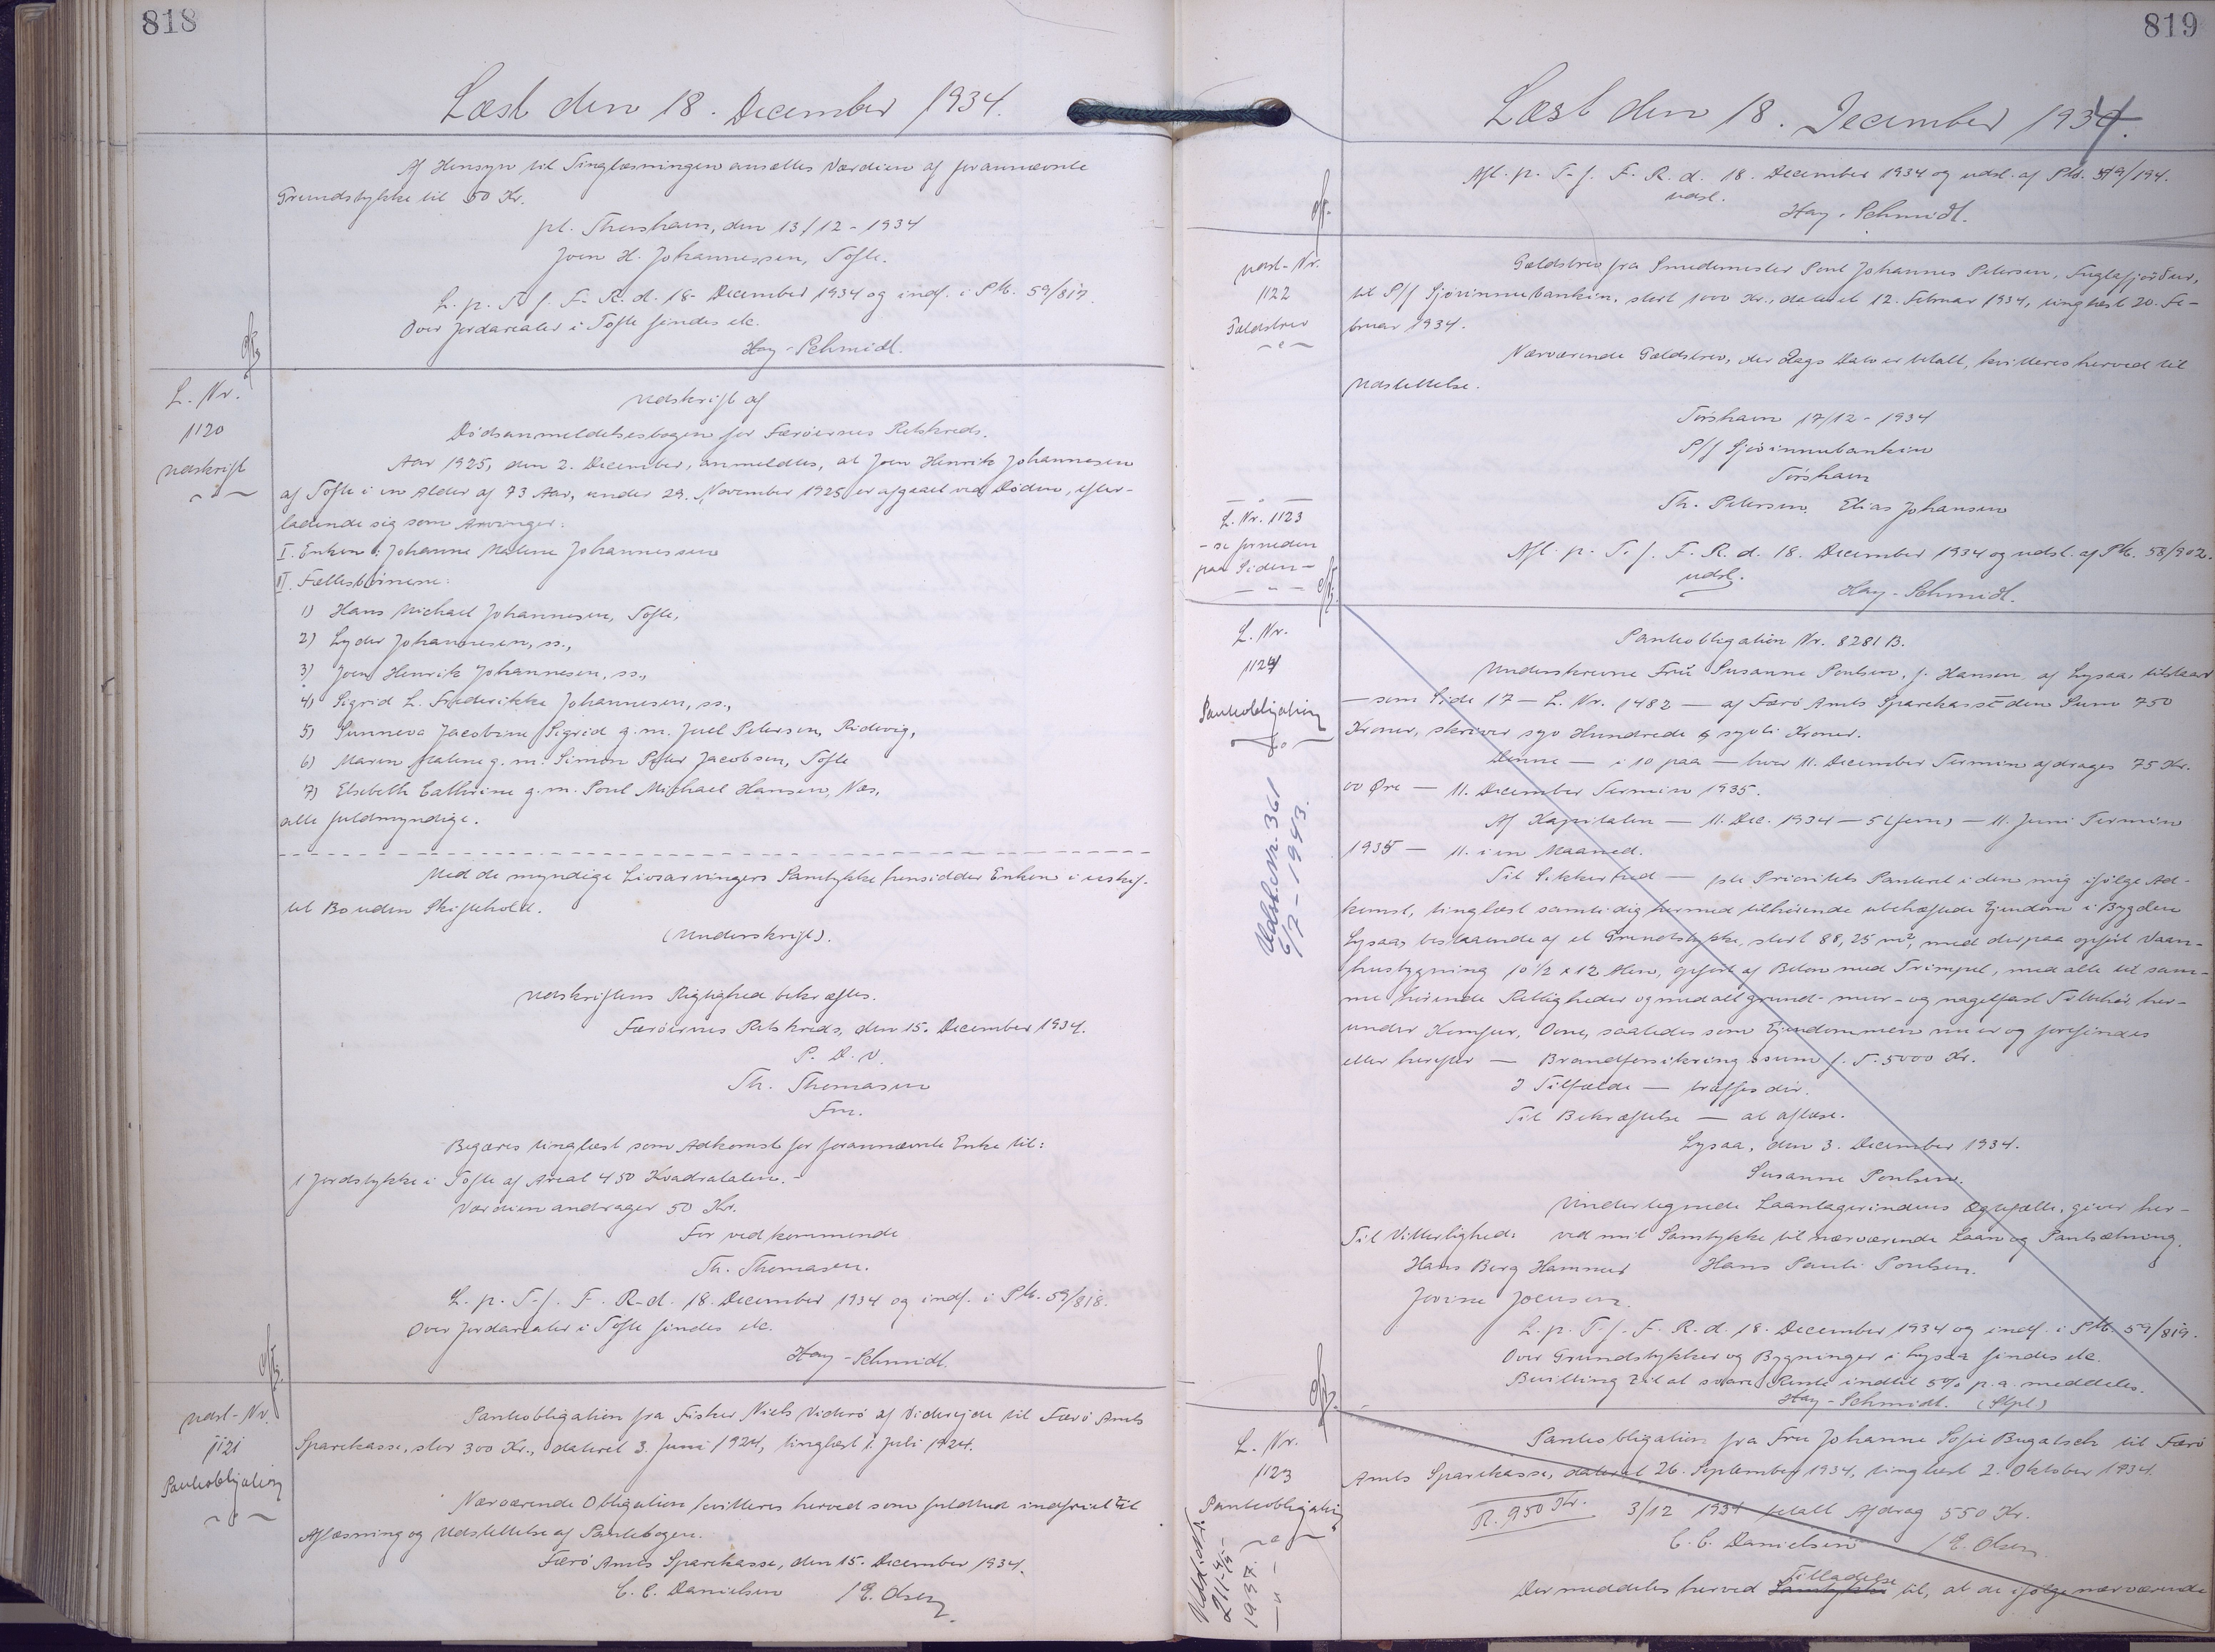 818
Læst den 18. December 1934.
Af Hensyn til Tinglæsningen ansættes Værdien af forannævnte
Grundstykke til 50 Kr.
pt. Thorshavn, den 13/12 - 1934
Joen H. Johannessen, Tofte.
L. p. T. f. F. R. d. 18. December 1934 og indf. i Ptb. 59/817.
Over Jordarealer i Tofte findes etc.
Hay-Schmidt.
L. Nr.
1120
Udskrift
Udskrift af
Dødsanmeldelsesbogen for Færøernes Retskreds.
Aar 1925, den 2. December, anmeldtes, at Joen Henrik Johannesen
af Tofte i en Alder af 73 Aar, under 29. November 1925 er afgaaet ved Døden, efter-
ladende sig som Arvinger:
I. Enken: Johanne Malene Johannessen
II. Fællesbörnene:
1) Hans Michael Johannesen, Tofte,
2) Lyder Johannesen, ss.,
3) Joen Henrik Johannesen, ss.,
4) Sigrid L. Frederikke Johannesen, ss.,
5) Sunneva Jacobine Sigrid g. m. Juel Petersen, Ridevig,
6) Maren Malene g. m. Simon Peter Jacobsen, Tofte
7) Elsebeth Cathrine g. m. Poul Michael Hansen, Næs,
alle fuldmyndige.
Med de myndige Livsarvingers Samtykke hensidder Enken i uskif-
tet Bo uden Skiftehold.
(Underskrift).
Udskriftens Rigtighed bekræftes.
Færöernes Retskreds, den 15. December 1934.
P. D. V.
Th. Thomasen
Fm.
Begæres tinglæst som Adkomst for forannævnte Enke til:
1 Jordstykke i Tofte af Areal 450 Kvadratalen.-
Værdien andrager 50 Kr.
For vedkommende
Th. Thomasen.
L. p. T. f. F. R. d. 18. December 1934 og indf. i Ptb. 59/818.
Over Jordarealer i Tofte findes etc.
Hay-Schmidt.
Udsl.-Nr.
1121
Panteobligation
Panteobligation fra Fisker Niels Viderö af Viderejde til Færö Amts
Sparekasse, stor 300 Kr., dateret 3. Juni 1924, tinglæst 1. Juli 1924.
Nærværende Obligation kvitteres herved som fuldtud indfriet til
Aflæsning og Udslettelse af Pantebogen.
Færö Amts Sparekasse, den 15. December 1934.
C. C. Danielsen / E. Olsen
819
Læst den 18. December 1934.
Afl. p. T. f. F. R. d. 18. December 1934 og udsl. af Ptb. 59/194.
udsl.
Hay-Schmidt.
Udsl-Nr.
1122
Gældsbrev
Gældsbrev fra Smedemester Poul Johannes Petersen, Fuglafjørður,
til P/f Sjóvinnubankin, stort 1000 Kr., dateret 12. Februar 1934, tinglæst 20. Fe-
bruar 1934.
Nærværende Gældsbrev, der Dags Dato er betalt, kvitteres herved til
Udslettelse.
Tórshavn 17/12 - 1934
P/f Sjóvinnubankin
Tórshavn
Th. Petersen. Elias Johansen
L. Nr. 1123
- se forneden
paa Siden -
Afl. p. T. f. F. R. d. 18. December 1934 og udsl. af Ptb. 58/902.
udsl.
Hay-Schmidt.
L. Nr.
1124
Panteobligation
Udsl. d. Nr. 361
6/7 - 1943.
Panteobligation Nr. 8281 B.
Underskrevne Fru Susanne Poulsen, f. Hansen af Lysaa, tilstaar
- som Side 17 - L. Nr. 1482 - af Færö Amts Sparekasse den Sum 750
Kroner, skriver syv Hundrede & syvti Kroner.
Denne - i 10 paa - hver 11. December Termin afdrages 75 Kr.
00 Øre - 11. December Termin 1935.
Af Kapitalen - 11. Dec. 1934 - 5 (fem) - 11. Juni Termin
1935 - 11. i en Maaned.
Til Sikkerhed - 1ste Prioritets Panteret i den mig ifølge Ad-
komst, tinglæst samtidig hermed tilhørende ubehæftede Ejendom i Bygden
Lysaa, bestaaende af et Grundstykke, stort 88,25 m², med derpaa opført Vaan-
husbygning 10 1/2 x 12 Alen, opført af Beton med Trimpel, med alle til sam-
me hörende Rettigheder og med alt grund- mur- og nagelfast Tilbehör, her-
under Komfur, Ovne, saaledes som Ejendommen nu er og forefindes
eller herefter - Brandforsikringssum f. T. 5000 Kr.
I Tilfælde - træffes der.
Til Bekræftelse - at aflæse.
Lysaa, den 3. December 1934.
Susanne Poulsen.
Undertegnede Laantagerindens Ægtefælle, giver her-
Til Vitterlighed: ved mit Samtykke til nærværende Laan og Pantsætning.
Hans Berg Hammer Hans Pauli Poulsen.
Jovine Joensen.
L. p. T. f. F. R. d. 18. December 1934 og indf. i Ptb. 59/819.
Over Grundstykker og Bygninger i Lysaa findes etc.
Bevilling til at svare Rente indtil 5% p. a. meddeles.
Hay-Schmidt. (Stpl)
L. Nr.
1123
Panteobligation
1937.
Panteobligation fra Fru Johanne Sofie Bugatsch til Færö
Amts Sparekasse, dateret 26. September 1934, tinglæst 2. Oktober 1934.
R. 950 Kr. 3/12 1934 betalt Afdrag 550 Kr.
C. C. Danielsen / E. Olsen
Tilladelse
Der meddeles herved Samtykke til, at de ifølge nærværende